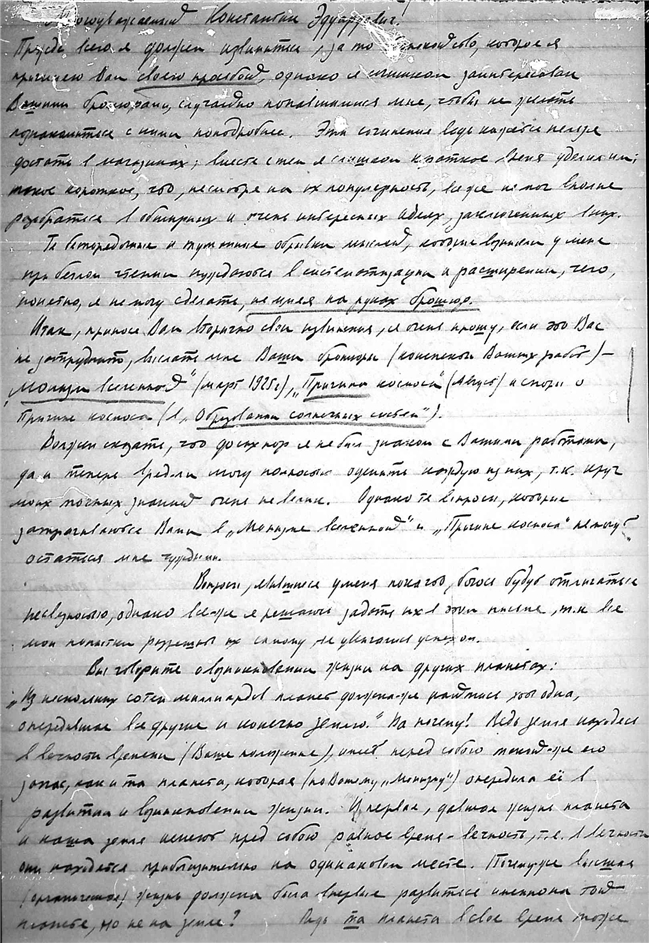 Многоуважаемый Константин Эдуардович.
Прежде всего я должен извиниться, за то беспокойство, которое я
причиняю Вам своею просьбой, однако я слишком заинтересован
Вашими брошюрами, случайно попавшимися мне, чтобы не желать
познакомиться с ними поподробнее. Эти сочинения ведь кажется нельзя
достать в магазинах; вместе с тем я слишком краткое время уделил им;
такое короткое, что, несмотря на их популярность, все же не мог вполне
разобраться в обширных и очень интересных идеях, заключенных в них.
Те беспорядочные и туманные обрывки мыслей, которые возникли у меня
при беглом чтении нуждаются в систематизации и расширении, чего,
понятно, я не могу сделать, не имея на руках брошюр.
Итак, принося Вам вторично свои извинения, я очень прошу, если это Вас
не затруднит, выслать мне Ваши брошюры (конспекты Ваших работ) –
„Монизм вселенной" (март 1925 г.), „Причина космоса" (Август) и споры о
Причине космоса (1, „Образовании солнечных систем").
Должен сказать, что до сих пор я не был знаком с Вашими работами,
да и теперь врядли могу полностью оценить каждую из них, т.к. круг
моих точных знаний очень не велик. Однако те вопросы, которые
затрагиваются Вами в „Монизме вселенной" и „Причине космоса" не могут
остаться мне чуждыми.
Вопросы, явившиеся у меня пока что, боюсь будут отличаться
несвязностью, однако все-же я решаюсь задать их в этом письме, т.к. все
мои попытки разрешить их самому не увенчались успехом.
Вы говорите о возникновении жизни на других планетах:
„Из нескольких сотен миллиардов планет должна-же найтись хоть одна,
опередившая все другие и конечно землю." На почему? Ведь земля находясь
в вечности времени (Ваше положение), имеет перед собою такой-же его
запас, как и та планета, которая (по Вашему „Монизму") опередила её в
развитии и возникновении жизни. И первая, давшая жизнь планета
и наша земля имеют пред собою равное время - вечность, т.е. в вечности
они находятся приблизительно на одинаковом месте. Почему же высшая
(органическая) жизнь должна была впервые развиться именно на той
планете, но не на земле? Ведь та планета в свое время тоже